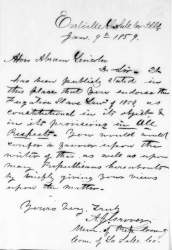 Earlville La Salle Co. Ills
Jany. 9th 1859.
Hon Abram Lincoln
Dr Sir- It
has been publicly stated in
this place that you endorse the
Fugitive Slave Law of 1850, as
constitutional in its objects &
in its provisions in All
Respects. You would much
confer a favour upon the
writer of this as well as upon
many Republicans hereabouts
by briefly giving your views
upon the matter.
Yours Very Truly
A J Grover
Mem. of Rep. Com.
Com. of La Salle Co.